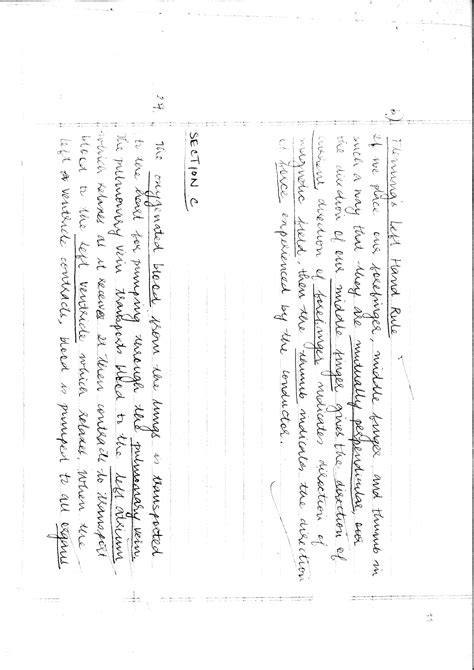 b) Flemings Left Hand Rule
If we place our forefinger, middle finger and thumb in
such a way that they are mutually perpendicular, our
the direction of our middle finger gives the direction of
current direction of forefinger indicates direction of
magnetic field, then the thumb indicates the direction
of force experienced by the conductor.
SECTION C
27. The oxygenated blood from the lungs is transported
to the heart for pumping through the pulmonary vein.
The pulmonary vein transports blood to the left atrium
which relaxes as it receives it then contracts to transport
blood to the left ventricle which relaxes. When the
left ventricle contracts, blood is pumped to all organs